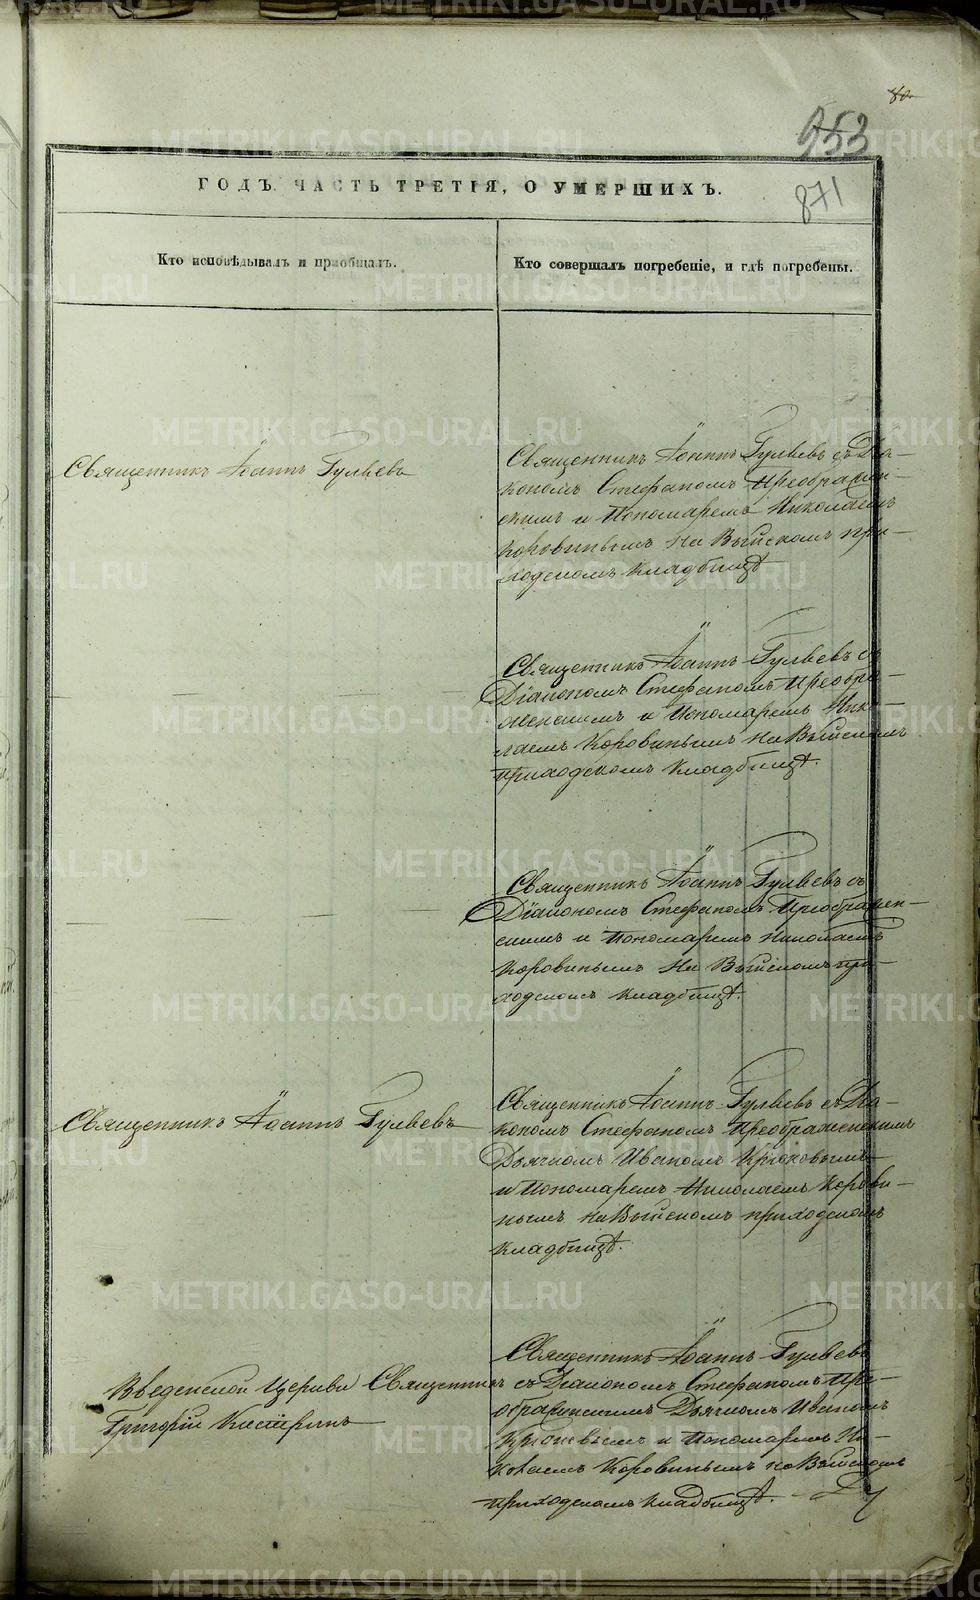 80
953
871
ГОДЪ. ЧАСТЬ ТРЕТІЯ, О УМЕРШИХЪ.
Кто исповѣдывалъ и пріобщалъ.
Кто совершалъ погребеніе, и гдѣ погребены.
Священникъ Іоаннъ Гуляевъ
Священникъ Іоаннъ Гуляевъ съ Діа-
кономъ Стефаномъ Преображен-
скимъ и Пономаремъ Николаемъ
Коровинымъ на Выйскомъ при-
ходскомъ кладбищѣ
Священникъ Іоаннъ Гуляевъ съ
Діакономъ Стефаномъ Преобра-
женскимъ и Пономаремъ Нико-
лаемъ Коровинымъ на Выйскомъ
приходскомъ кладбищѣ.
Священникъ Іоаннъ Гуляевъ съ
Діакономъ Стефаномъ Преображен-
скимъ и Пономаремъ Николаемъ
Коровинымъ на Выйскомъ при-
ходскомъ кладбищѣ.
Священникъ Іоаннъ Гуляевъ
Священникъ Іоаннъ Гуляевъ съ Діа-
кономъ Стефаномъ Преображенскимъ
Дьячкомъ Иваномъ Крюковымъ
и Пономаремъ Николаемъ Корови-
нымъ на Выйскомъ приходскомъ
кладбищѣ.
Введенской Церкви Священникъ
Григорій
Священникъ Іоаннъ Гуляевъ
съ Діакономъ Стефаномъ Пре-
ображенскимъ Дьячкомъ Иваномъ
Крюковымъ и Пономаремъ Ни-
колаемъ Коровинымъ на Выйскомъ
приходскомъ кладбищѣ.
METRIKI.GASO-URAL.RU